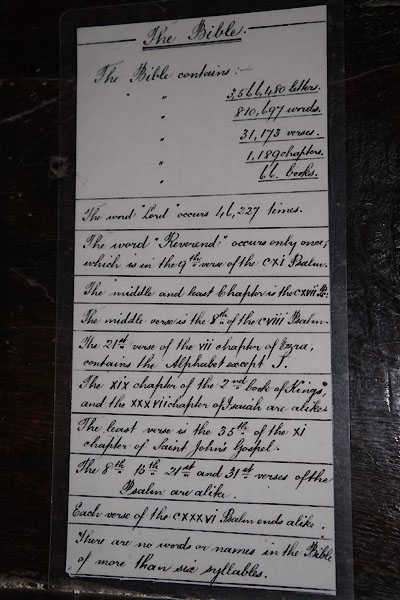 The Bible.
The Bible contains:-
" " 3,566,480 letters.
" " 810,697 words.
" " 31,173 verses.
" " 1,189 chapters.
" " 66 books.
The word "Lord" occurs 46,227 times.
The word "Reverend" occurs only once,
which is in the 9th verse of the CXI Psalm.
The middle and least Chapter is the CXVII Ps:
The middle verse is the 8th of the CVIII Psalm-
The 21st verse of the VII chapter of Ezra,
contains the Alphabet except J.
The XIX chapter of the 2nd book of Kings,
and the XXXVII chapter of Isaiah are alike.
The least verse is the 35th of the XI
chapter of Saint John's Gospel.
The 8th 15th 21st and 31st verses of the
Psalm are alike.
Each verse of the CXXXVI Psalm ends alike.
There are no words or names in the Bible
of more than six syllables.